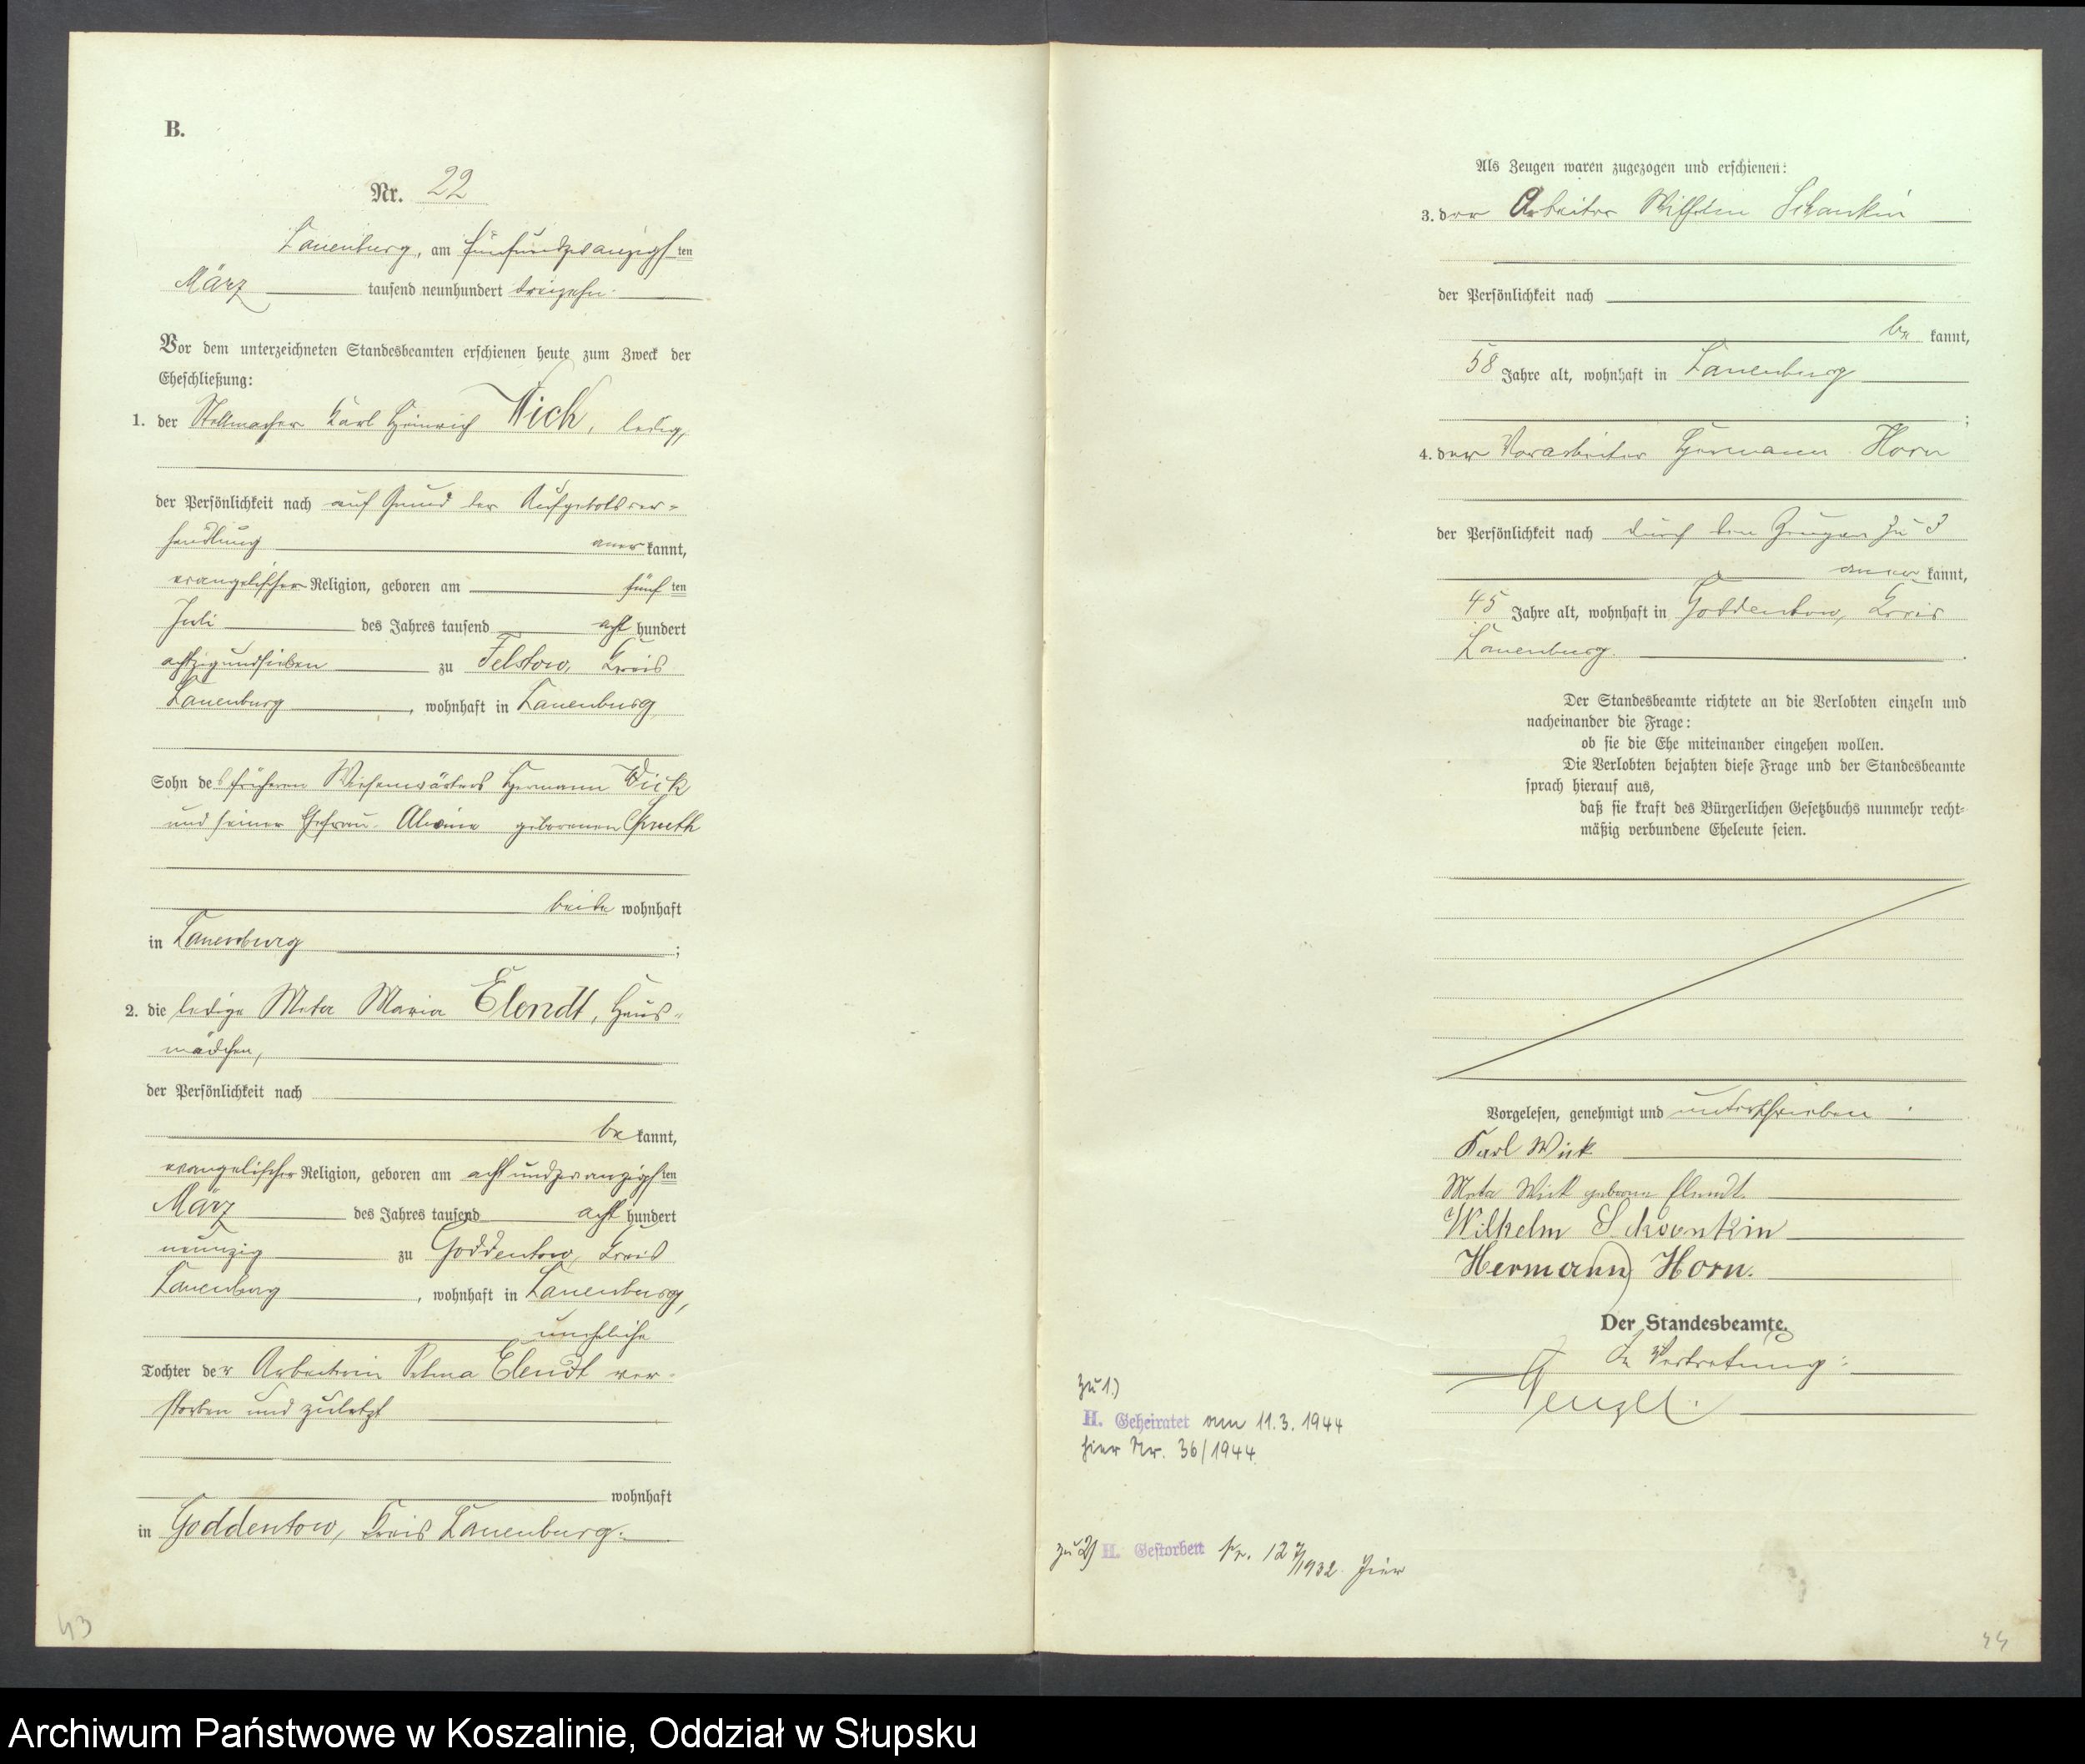 B.
Nr. 22
Lauenburg, am fünfundzwanzigsten
März tausend neunhundert dreizehn.
Vor dem unterzeichneten Standesbeamten erschienen heute zum Zweck der
Eheschließung:
1. der Stellmacher Karl Heinrich Wick, ledig,
der Persönlichkeit nach auf Grund der Aufgebotsver-
handlung anerkannt,
evangelischer Religion, geboren am fünften
Juli des Jahres tausend acht hundert
achtzigundsieben zu Felstow, Kreis
Lauenburg, wohnhaft in Lauenburg
Sohn des früheren Wiesenwärters Hermann Wick
und seiner Ehefrau Alwine geborenen
beide wohnhaft
in Lauenburg;
2. die ledige Meta Maria Elendt, Haus-
mädchen,
der Persönlichkeit nach
bekannt,
evangelischer Religion, geboren am achtundzwanzigsten
März des Jahres tausend acht hundert
neunzig zu Goddentow, Kreis
Lauenburg, wohnhaft in Lauenburg,
uneheliche
Tochter der Arbeiterin Selma Elendt ver-
storben und zuletzt
wohnhaft
in Goddentow, Kreis Lauenburg.
43
Als Zeugen waren zugezogen und erschienen:
3. der Arbeiter Wilhelm Schankin
der Persönlichkeit nach
bekannt,
58 Jahre alt, wohnhaft in Lauenburg
;
4. der Vorarbeiter Hermann Horn
der Persönlichkeit nach durch den Zeugen zu 3
anerkannt,
45 Jahre alt, wohnhaft in Goddentow, Kreis
Lauenburg.
Der Standesbeamte richtete an die Verlobten einzeln und
nacheinander die Frage:
ob sie die Ehe miteinander eingehen wollen.
Die Verlobten bejahten diese Frage und der Standesbeamte
sprach hierauf aus,
daß sie kraft des Bürgerlichen Gesetzbuchs nunmehr recht-
mäßig verbundene Eheleute seien.
Vorgelesen, genehmigt und unterschrieben:
Karl Wick
Meta Wick geborne Elendt.
Wilhelm Schankin
Hermann Horn.
Der Standesbeamte.
In Vertretung:
zu 1.)
H. Geheiratet am 11.3.1944
hier Nr. 36/1944.
zu 2) H. Gestorben Nr. 127/1932 hier
44
Archiwum Państwowe w Koszalinie, Oddział w Słupsku